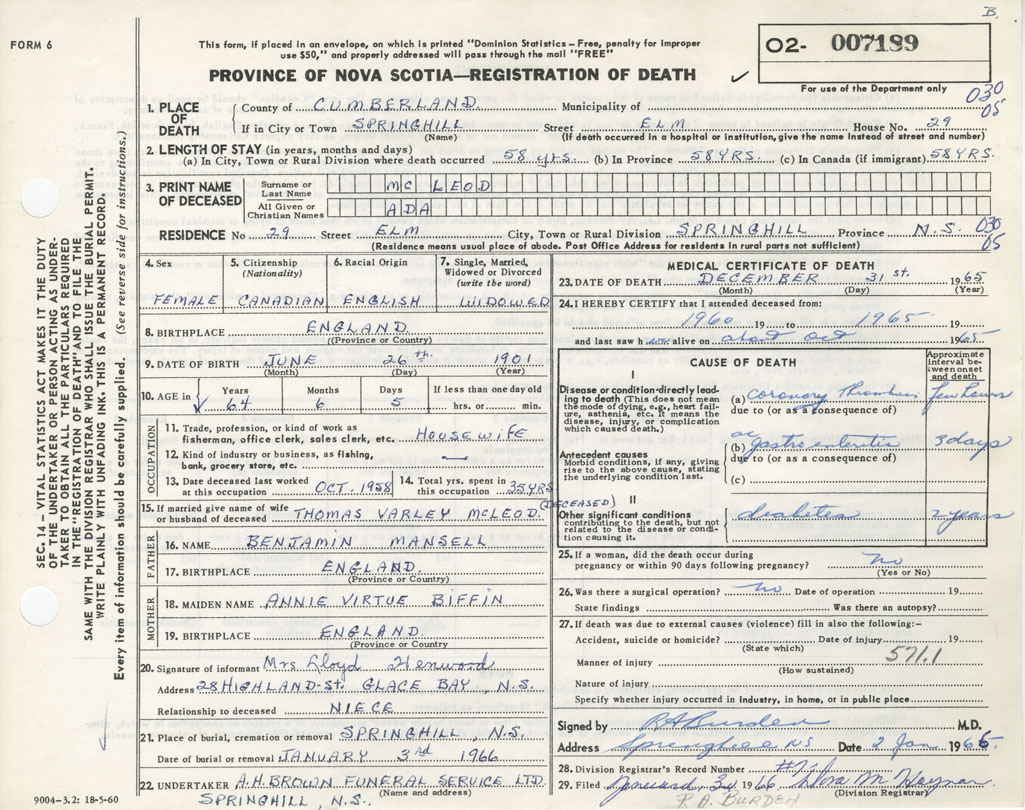 B.
FORM 6
This form, if placed in an envelope, on which is printed "Dominion Statistics – Free, penalty for improper
use $50," and properly addressed will pass through the mail "FREE"
O2- 007189
PROVINCE OF NOVA SCOTIA—REGISTRATION OF DEATH ✓
For use of the Department only
030
05
1. PLACE OF DEATH
County of CUMBERLAND Municipality of
If in City or Town SPRINGHILL Street ELM House No. 29
(Name) (If death occurred in a hospital or institution, give the name instead of street and number)
2. LENGTH OF STAY (in years, months and days)
(a) In City, Town or Rural Division where death occurred 58 yrs. (b) In Province 58 YRS. (c) In Canada (if immigrant) 58 YRS.
3. PRINT NAME OF DECEASED
Surname or Last Name MC LEOD
All Given or Christian Names ADA
RESIDENCE No 29 Street ELM City, Town or Rural Division SPRINGHILL Province N.S. 030
05
(Residence means usual place of abode. Post Office Address for residents in rural parts not sufficient)
4. Sex FEMALE
5. Citizenship (Nationality) CANADIAN
6. Racial Origin ENGLISH
7. Single, Married, Widowed or Divorced (write the word) WIDOWED
8. BIRTHPLACE ENGLAND
((Province or Country)
9. DATE OF BIRTH JUNE 26th. 1901
(Month) (Day) (Year)
10. AGE in ✓ Years 64 Months 6 Days 5 If less than one day old hrs. or min.
OCCUPATION
11. Trade, profession, or kind of work as
fisherman, office clerk, sales clerk, etc. HOUSEWIFE
12. Kind of industry or business, as fishing,
bank, grocery store, etc. —
13. Date deceased last worked
at this occupation OCT. 1958
14. Total yrs. spent in
this occupation 35 YRS
15. If married give name of wife
or husband of deceased THOMAS VARLEY MCLEOD (DECEASED)
FATHER
16. NAME BENJAMIN MANSELL
17. BIRTHPLACE ENGLAND
(Province or Country)
MOTHER
18. MAIDEN NAME ANNIE VIRTUE BIFFIN
19. BIRTHPLACE ENGLAND
(Province or Country
20. Signature of informant Mrs Lloyd Henwood
Address 28 HIGHLAND-St. GLACE BAY, N.S.
Relationship to deceased NIECE
21. Place of burial, cremation or removal SPRINGHILL, N.S.
Date of burial or removal JANUARY 3rd 1966
22. UNDERTAKER A.H. BROWN FUNERAL SERVICE LTD.
(Name and address)
SPRINGHILL, N.S.
9004–3.2: 18-5-60
MEDICAL CERTIFICATE OF DEATH
23. DATE OF DEATH DECEMBER 31st. 1965
(Month) (Day) (Year)
24. I HEREBY CERTIFY that I attended deceased from:
1960 19 to 1965 19
and last saw h alive on about Oct 1965
CAUSE OF DEATH
Approximate interval between onset and death
I
Disease or condition directly leading to death (This does not mean the mode of dying, e.g., heart failure, asthenia, etc. It means the disease, injury, or complication which caused death.)
(a) Coronary Thrombus few hours
due to (or as a consequence of)
or
(b) gastro enteritis 3 days
due to (or as a consequence of)
(c)
Antecedent causes
Morbid conditions, if any, giving rise to the above cause, stating the underlying condition last.
II
Other significant conditions
contributing to the death, but not related to the disease or condition causing it.
diabetes 2 years
25. If a woman, did the death occur during
pregnancy or within 90 days following pregnancy? no
(Yes or No)
26. Was there a surgical operation? no Date of operation 19
State findings Was there an autopsy?
27. If death was due to external causes (violence) fill in also the following:-
Accident, suicide or homicide? Date of injury 19
(State which)
571.1
Manner of injury
(How sustained)
Nature of injury
Specify whether injury occurred in industry, in home, or in public place
Signed by RA Burden M.D.
Address Springhill NS Date 2 Jan 1966
28. Division Registrar's Record Number
29. Filed January 3rd 1966
(Division Registrar)
R.A. BURDEN
SEC. 14 – VITAL STATISTICS ACT MAKES IT THE DUTY
OF THE UNDERTAKER OR PERSON ACTING AS UNDER-
TAKER TO OBTAIN ALL THE PARTICULARS REQUIRED
IN THE "REGISTRATION OF DEATH" AND TO FILE THE
SAME WITH THE DIVISION REGISTRAR WHO SHALL ISSUE THE BURIAL PERMIT.
WRITE PLAINLY WITH UNFADING INK. THIS IS A PERMANENT RECORD.
Every item of information should be carefully supplied. (See reverse side for instructions.)